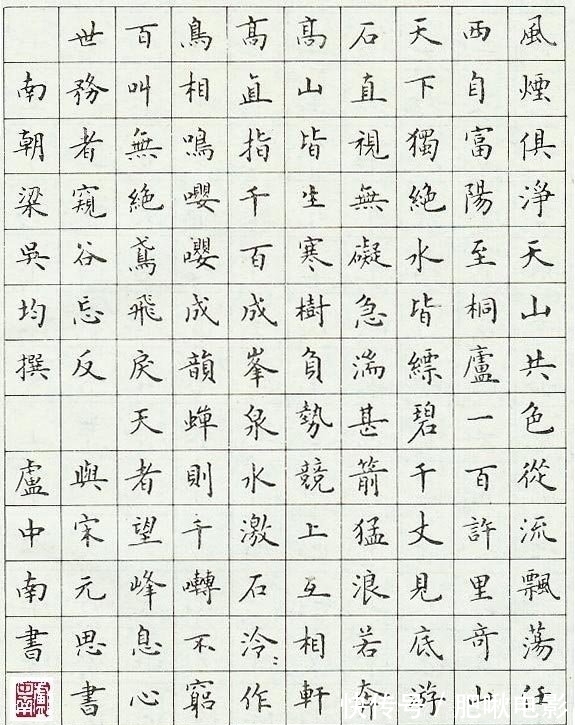 風煙俱淨天山共色從流飄蕩任
西自富陽至桐廬一百許里奇山
天下獨絕水皆縹碧千丈見底游
石直視無礙急湍甚箭猛浪若奔
高山皆生寒樹負勢競上互相軒
高直指千百成峯泉水激石泠:作
鳥相鳴嚶嚶成韻蟬則千囀不窮
百叫無絕鳶飛戾天者望峰息心
世務者窺谷忘反 與宋元思書
南朝梁吳均撰 盧中南書
快传号/肥啾电影